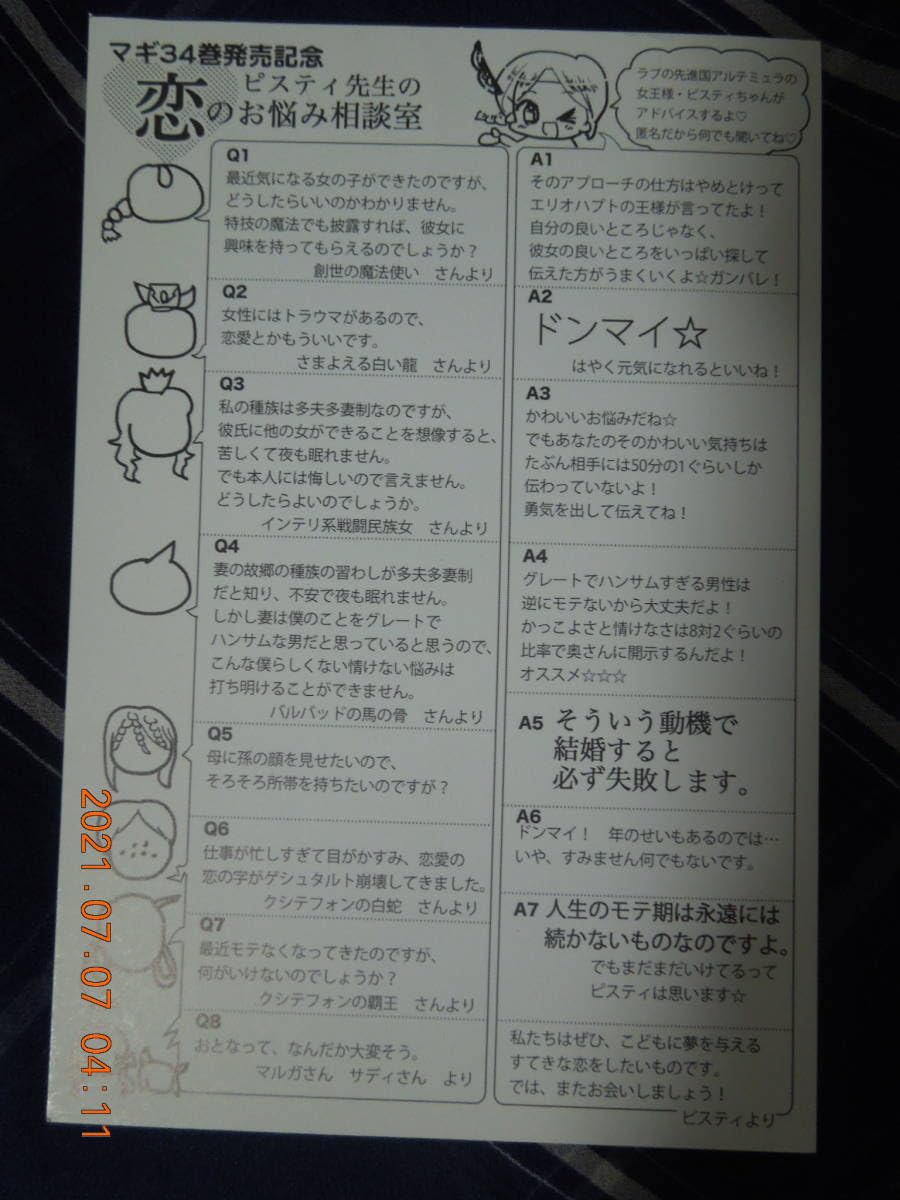 マギ34巻発売記念
ピスティ先生の
恋のお悩み相談室
ラブの先進国アルテミュラの
女王様・ピスティちゃんが
アドバイスするよ♡
匿名だから何でも聞いてね♡
Q1
最近気になる女の子ができたのですが、
どうしたらいいのかわかりません。
特技の魔法でも披露すれば、彼女に
興味を持ってもらえるのでしょうか？
創世の魔法使い　さんより
A1
そのアプローチの仕方はやめとけって
エリオハプトの王様が言ってたよ！
自分の良いところじゃなく、
彼女の良いところをいっぱい探して
伝えた方がうまくいくよ☆ガンバレ！
Q2
女性にはトラウマがあるので、
恋愛とかもういいです。
さまよえる白い龍　さんより
A2
ドンマイ☆
はやく元気になれるといいね！
Q3
私の種族は多夫多妻制なのですが、
彼氏に他の女ができることを想像すると、
苦しくて夜も眠れません。
でも本人には悔しいので言えません。
どうしたらよいのでしょうか。
インテリ系戦闘民族女　さんより
A3
かわいいお悩みだね☆
でもあなたのそのかわいい気持ちは
たぶん相手には50分の1ぐらいしか
伝わっていないよ！
勇気を出して伝えてね！
Q4
妻の故郷の種族の習わしが多夫多妻制
だと知り、不安で夜も眠れません。
しかし妻は僕のことをグレートで
ハンサムな男だと思っていると思うので、
こんな僕らしくない情けない悩みは
打ち明けることができません。
バルバッドの馬の骨　さんより
A4
グレートでハンサムすぎる男性は
逆にモテないから大丈夫だよ！
かっこよさと情けなさは8対2ぐらいの
比率で奥さんに開示するんだよ！
オススメ☆☆☆
Q5
母に孫の顔を見せたいので、
そろそろ所帯を持ちたいのですが？
A5 そういう動機で
結婚すると
必ず失敗します。
Q6
仕事が忙しすぎて目がかすみ、恋愛の
恋の字がゲシュタルト崩壊してきました。
クシテフォンの白蛇　さんより
A6
ドンマイ！　年のせいもあるのでは…
いや、すみません何でもないです。
Q7
最近モテなくなってきたのですが、
何がいけないのでしょうか？
クシテフォンの覇王　さんより
A7 人生のモテ期は永遠には
続かないものなのですよ。
でもまだまだいけてるって
ピスティは思います☆
Q8
おとなって、なんだか大変そう。
マルガさん　サディさん　より
私たちはぜひ、こどもに夢を与える
すてきな恋をしたいものです。
では、またお会いしましょう！
ピスティより
2021.07.07 04:11